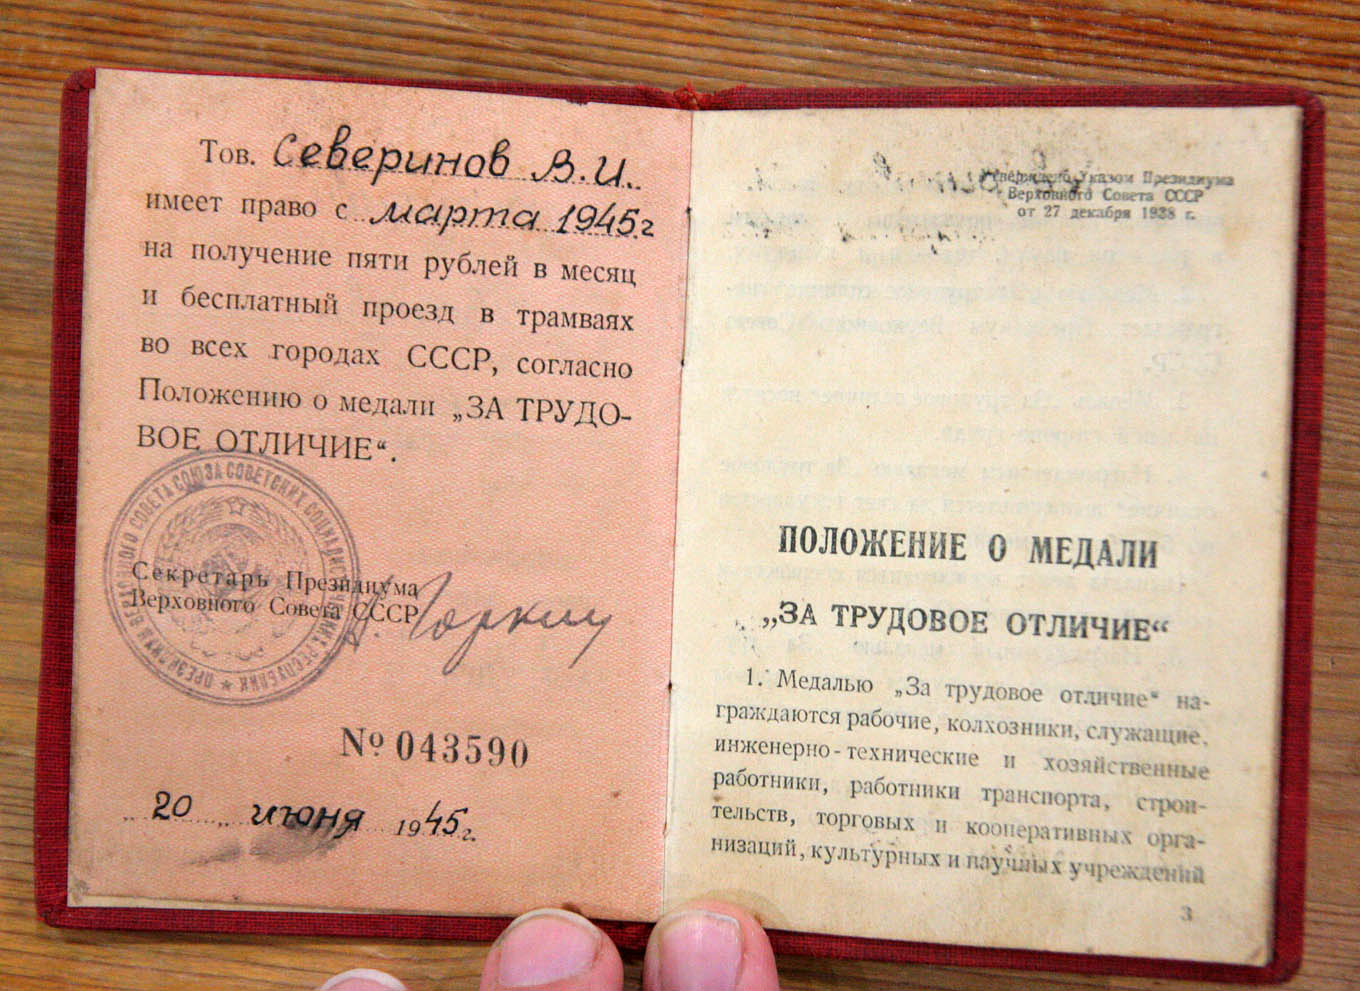 Тов. Северинов В.И.
имеет право с марта 1945г
на получение пяти рублей в месяц
и бесплатный проезд в трамваях
во всех городах СССР, согласно
Положению о медали „ЗА ТРУДО-
ВОЕ ОТЛИЧИЕ“.
ПРЕЗИДИУМ ВЕРХОВНОГО СОВЕТА СОЮЗА СОВЕТСКИХ СОЦИАЛИСТИЧЕСКИХ РЕСПУБЛИК
Секретарь Президиума
Верховного Совета СССР
А. Горкин
№ 043590
„20„ июня 1945г.
Утверждено Указом Президиума
Верховного Совета СССР
от 27 декабря 1938 г.
ПОЛОЖЕНИЕ О МЕДАЛИ
„ЗА ТРУДОВОЕ ОТЛИЧИЕ“
1. Медалью „За трудовое отличие“ на-
граждаются рабочие, колхозники, служащие,
инженерно-технические и хозяйственные
работники, работники транспорта, строи-
тельств, торговых и кооперативных орга-
низаций, культурных и научных учреждений
3